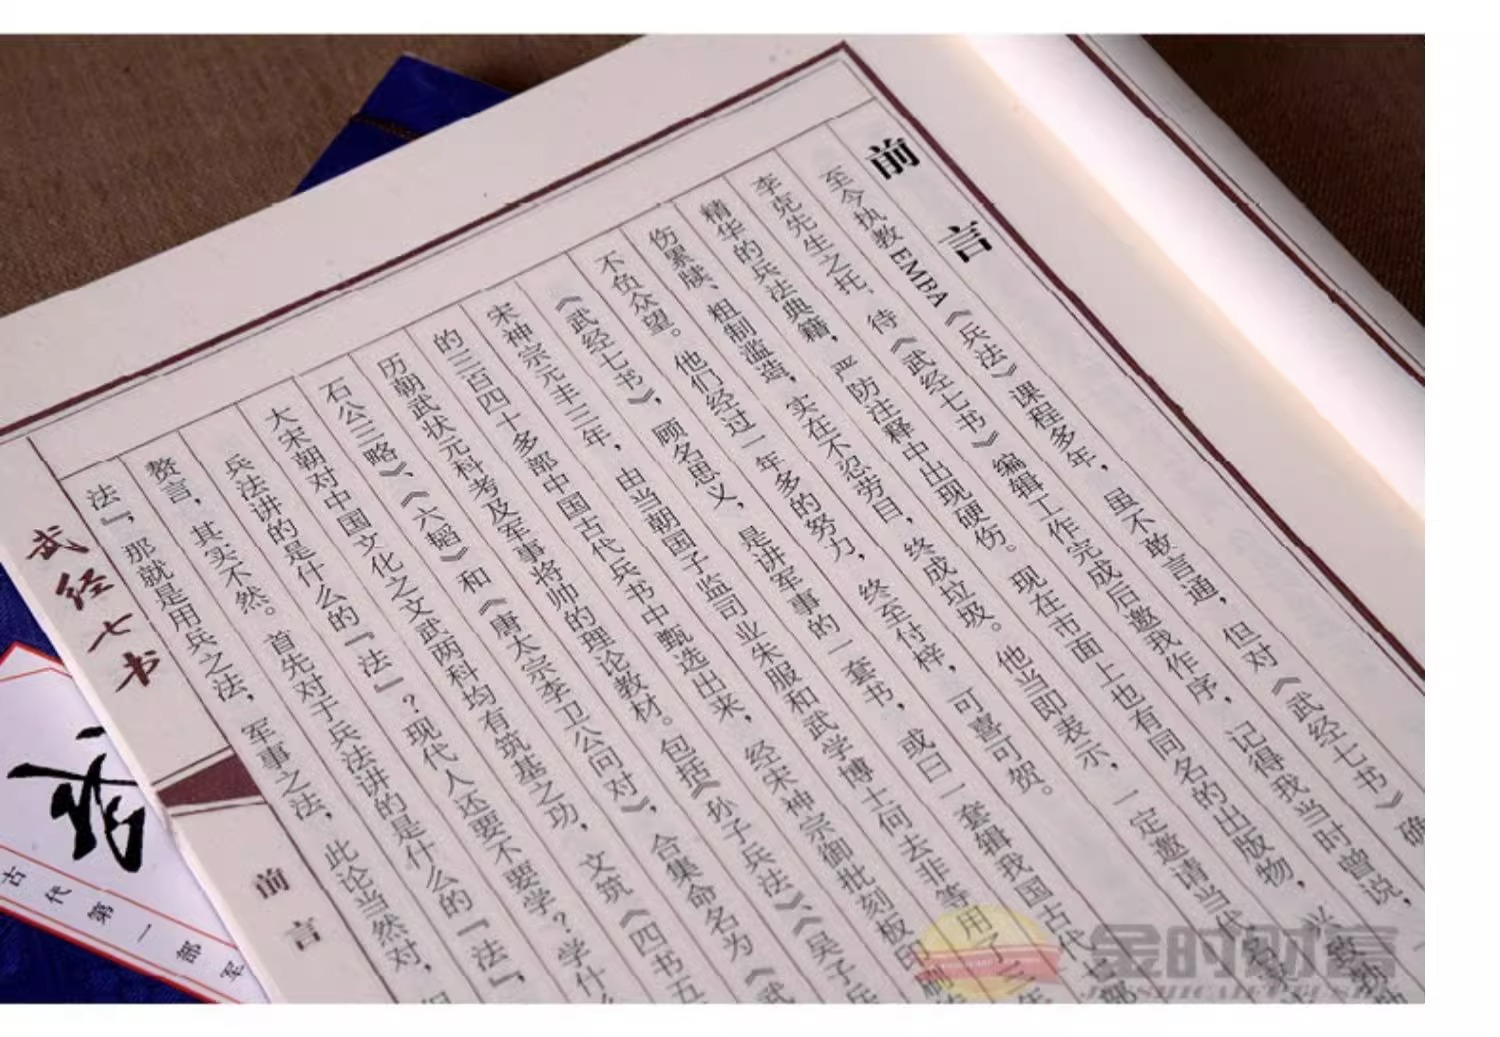 前言
至今执教EMBA《兵法》课程多年，虽不敢言通，但对《武经七书》确
李克先生之托，待《武经七书》编辑工作完成后邀我作序，记得我当时曾说，
精华的兵法典籍，严防注释中出现硬伤。现在市面上也有同名的出版物，
伤累牍、粗制滥造，实在不忍劳目，终成垃圾。他当即表示，一定邀请当代
不负众望。他们经过一年多的努力，终至付梓，可喜可贺。
《武经七书》，顾名思义，是讲军事的一套书，或曰一套辑我国古代七部
宋神宗元丰三年，由当朝国子监司业朱服和武学博士何去非等用了三年
的三百四十多部中国古代兵书中甄选出来，经宋神宗御批刻板印刷
历朝武状元科考及军事将帅的理论教材。包括《孙子兵法》、《吴子兵
石公三略》、《六韬》和《唐太宗李卫公问对》，合集命名为《武
大宋朝对中国文化之文武两科均有筑基之功，文筑《四书五
兵法讲的是什么的『法』？现代人还要不要学？学什么
赘言，其实不然。首先对于兵法讲的是什么的『法』，
法』，那就是用兵之法，军事之法，此论当然对，但
武经七书
前言
古代第一部军
金时财富